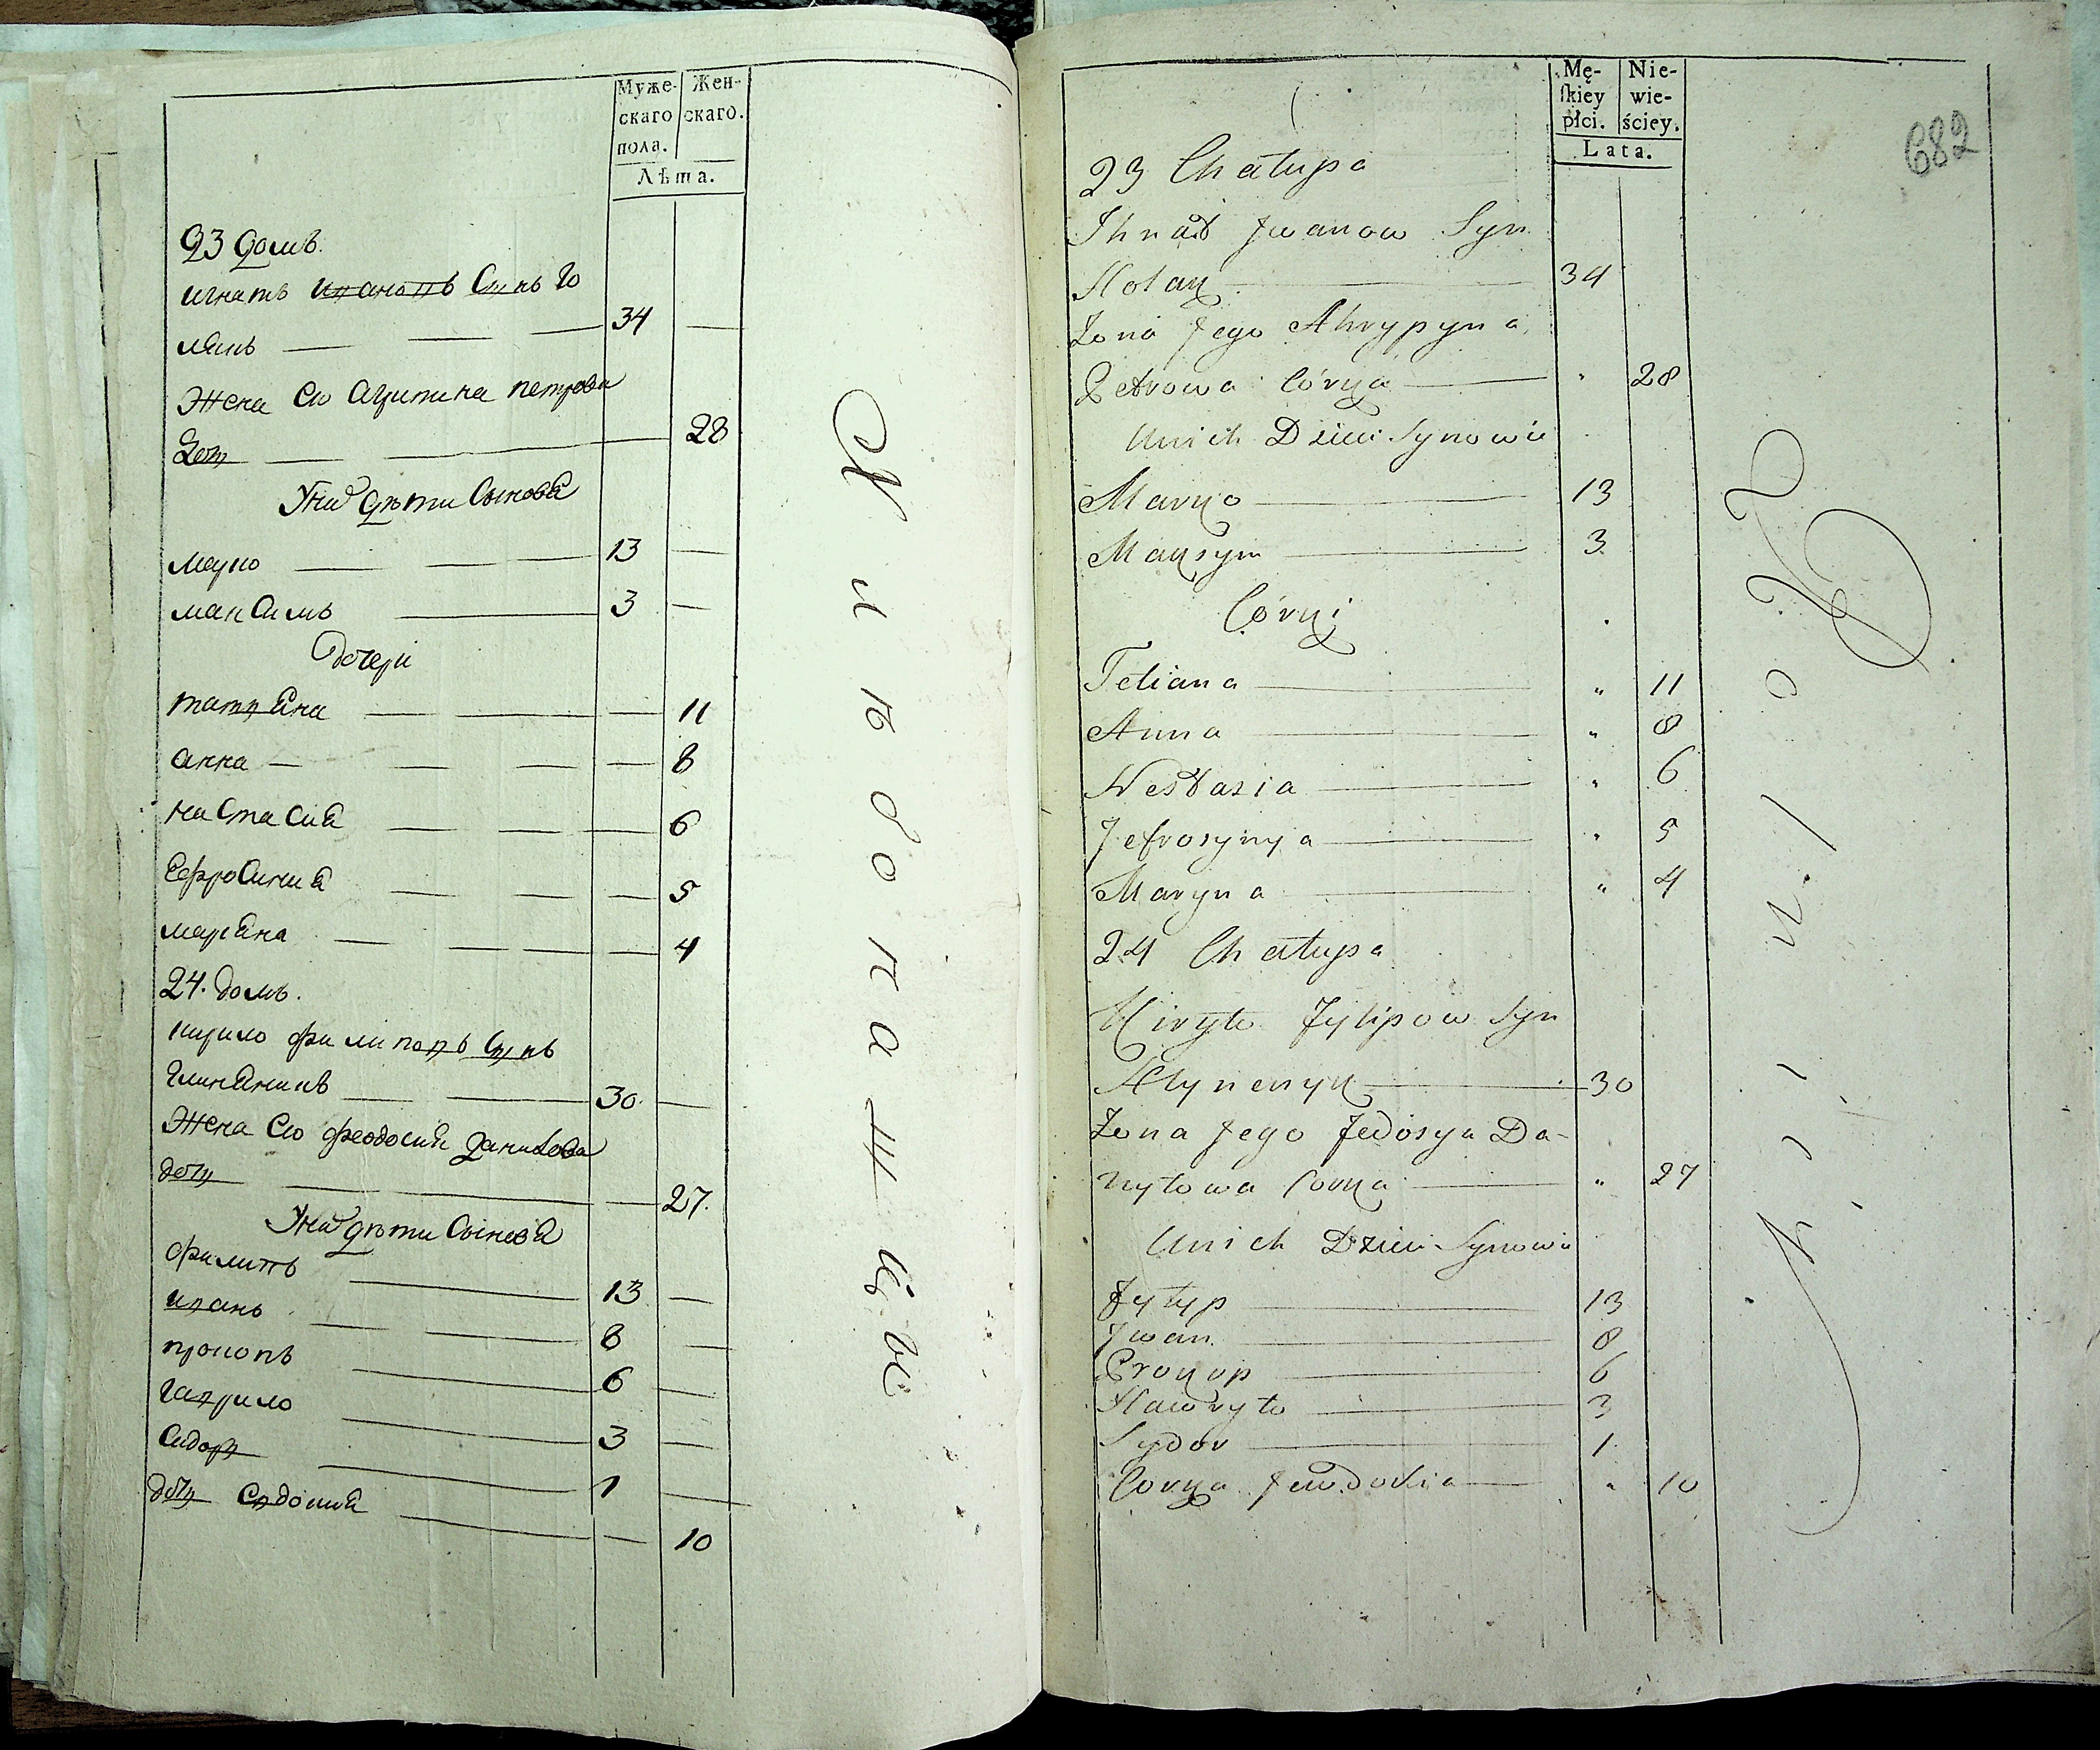 Муже-
скаго
пола.
Жен-
скаго.
Лѣта.
23 домъ.
игнатъ ивановъ Сынъ Го
лянъ 34
Жена Ево агрипина петрова
Доч 28
У них дѣти Сыновя
марко 13
максимъ 3
Дочери
татияна 11
анна 8
настасия 6
Ефросиния 5
маряна 4
24. домъ.
кирило филиповъ Сынъ
Глиняникъ 30
Жена Ево феодосия данилова
доч 27.
У них дѣти Сыновя
филипъ 13
иванъ 8
прокопъ 6
гаврило 3
Сидор 1
доч Евдокия 10
Mę-
skiey
płci.
Nie-
wie-
ściey.
Lata.
682
23 Chałupa
Ihnat Jwanow Syn
Holan 34
Żona Jego Ahrypyna
Petrowa Córka 28
Unich Dzieci Synowie
Marko 13
Maksym 3
Córki
Tetiana 11
Anna 8
Nestazia 6
Jefrosynya 5
Maryna 4
24 Chałupa
Kiryło Fylipow Syn
Hlynenyk 30
Żona Jego Fedosya Da-
nyłowa Corka 27
Unich Dzieci Synowie
Fylyp 13
Jwan 8
Prokop 6
Hawryło 3
Sydor 1
Corka Jewdokia 10